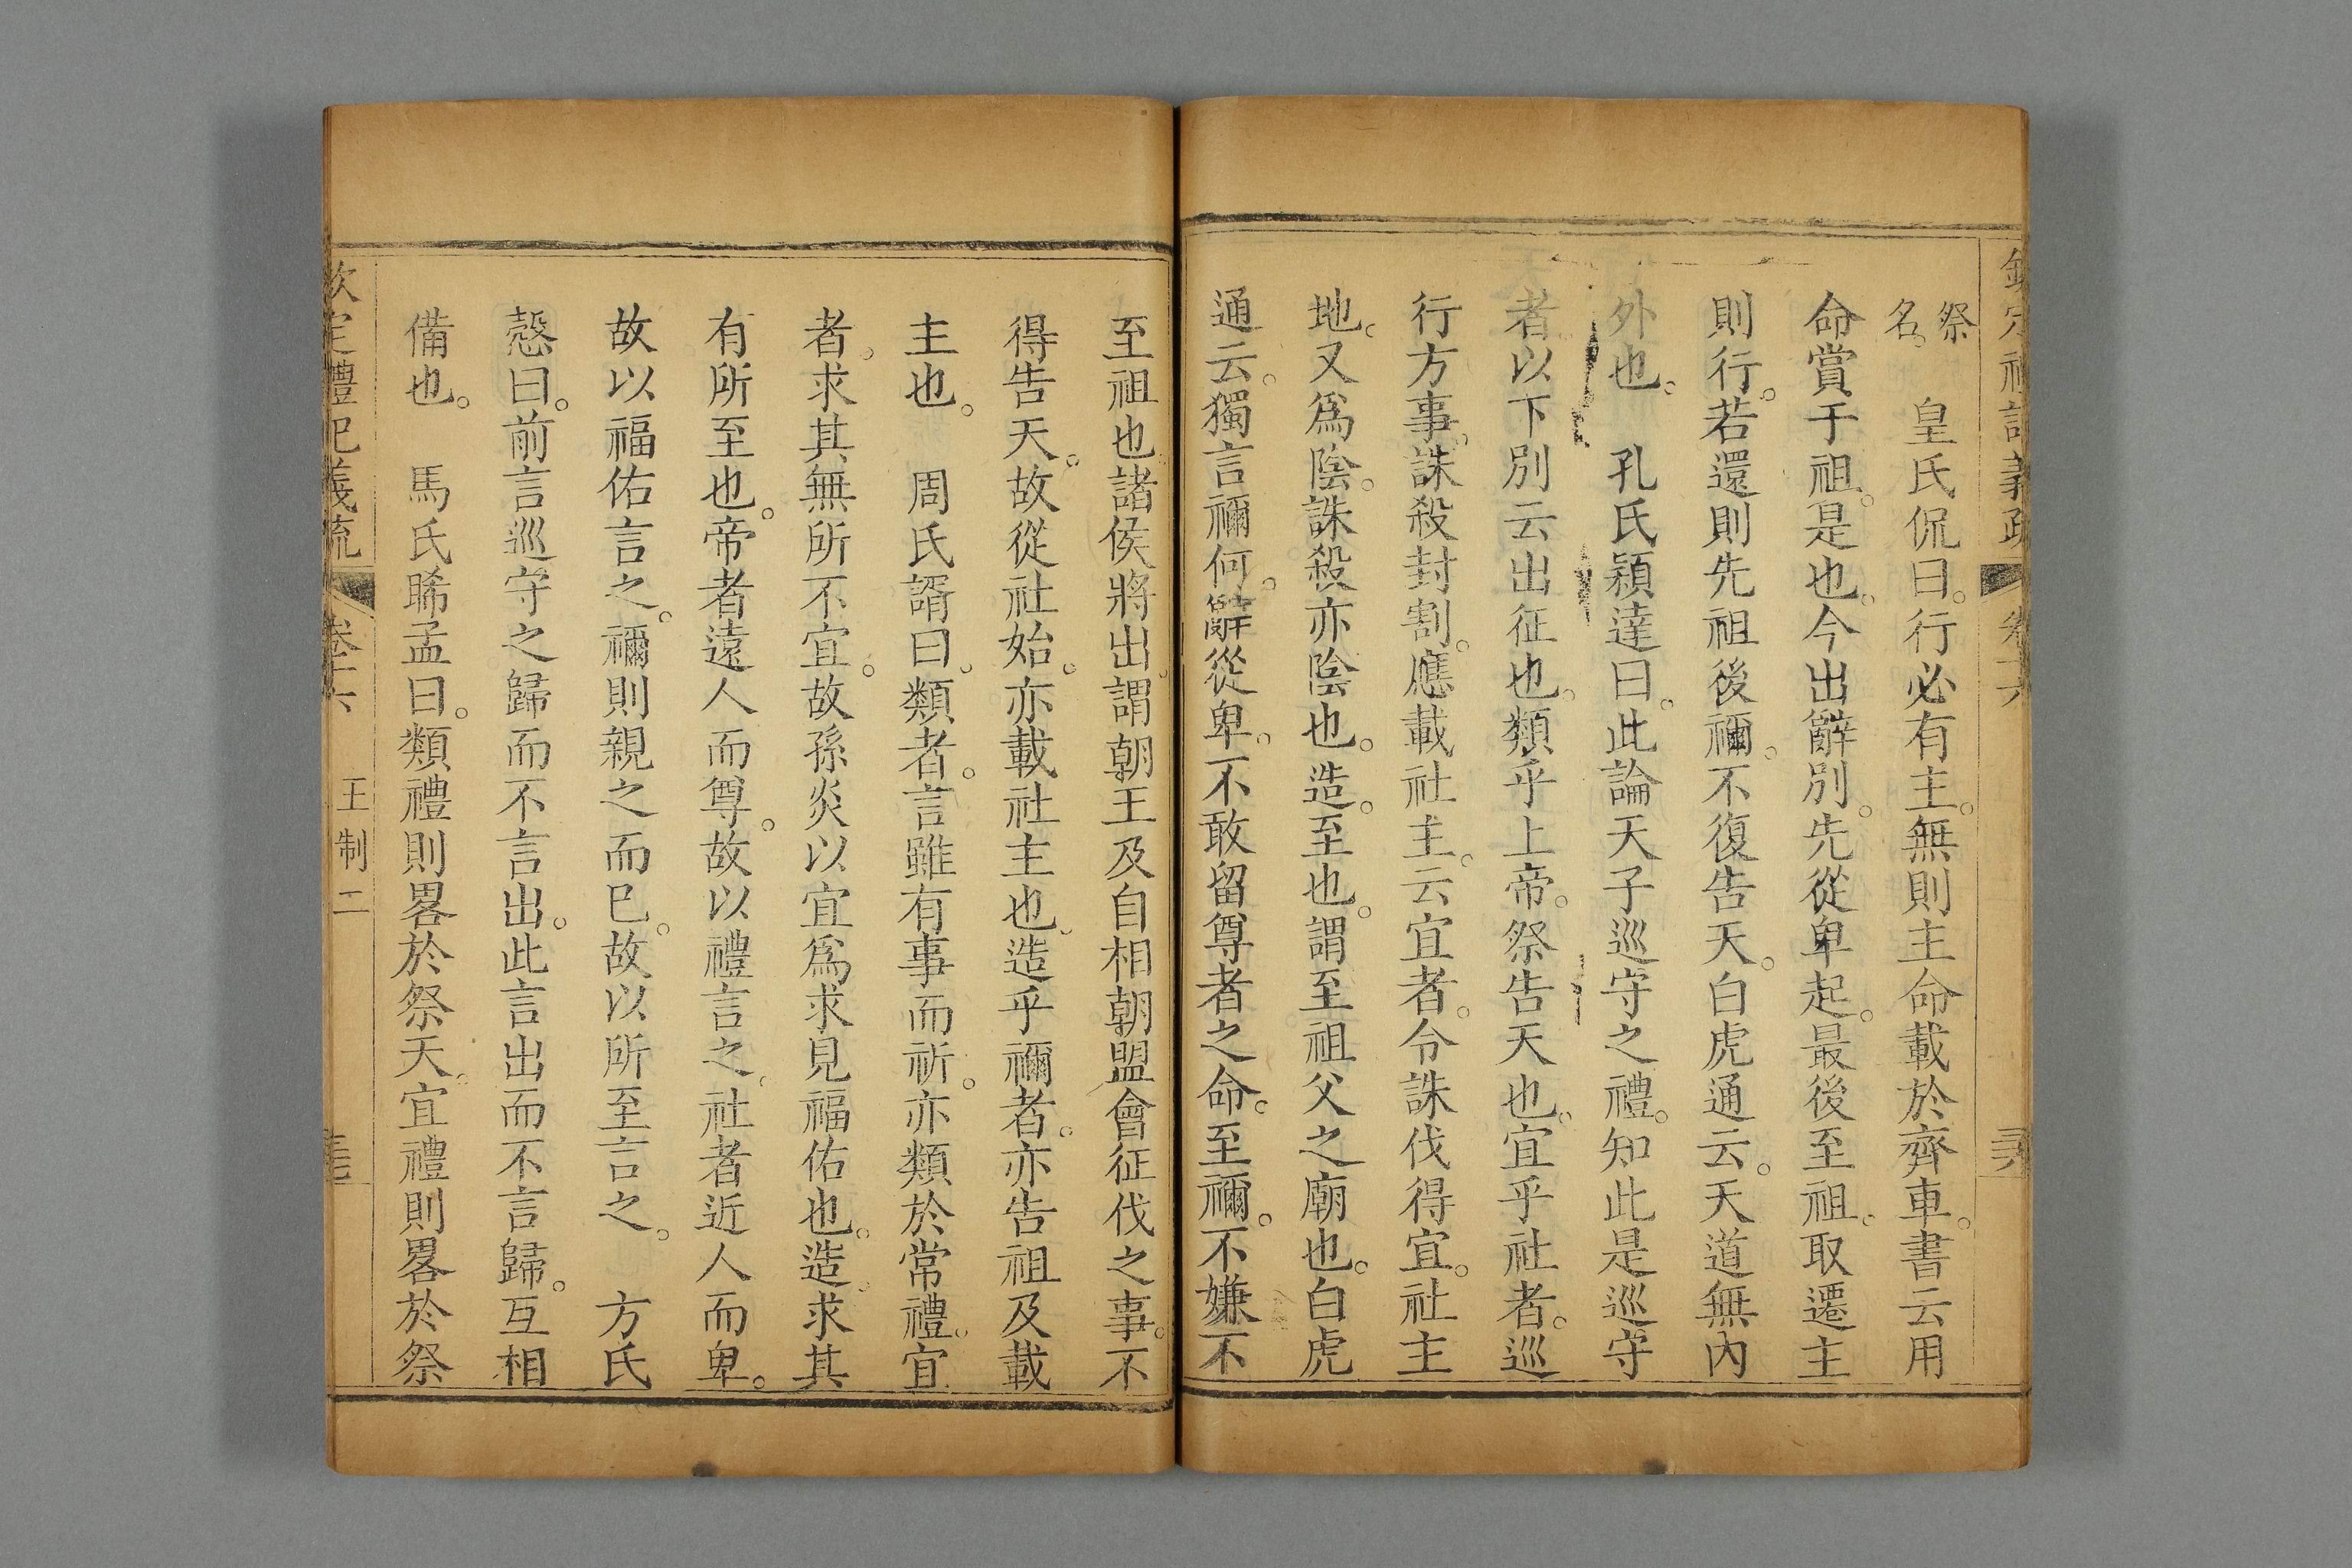 欽定禮記義疏 卷十六
祭名。 皇氏侃曰。行必有主。無則主命載於齊車。書云用
命賞于祖。是也。今出辭別。先從卑起。最後至祖。取遷主
則行。若還則先祖後禰。不復告天。白虎通云。天道無內
外也。 孔氏穎達曰。此論天子巡守之禮。知此是巡守
者以下別云出征也。類乎上帝。祭告天也。宜乎社者。巡
行方事。誅殺封割。應載社主。云宜者。令誅伐得宜。社主
地。又爲陰。誅殺亦陰也。造。至也。謂至祖父之廟也。白虎
通云。獨言禰何。辭從卑。不敢留尊者之命。至禰。不嫌不
至祖也。諸侯將出。謂朝王及自相朝盟會征伐之事。不
得告天。故從社始。亦載社主也。造乎禰者。亦告祖及載
主也。 周氏諝曰。類者。言雖有事而祈。亦類於常禮。宜
者。求其無所不宜。故孫炎以宜爲求見福佑也。造。求其
有所至也。帝者遠人而尊。故以禮言之。社者近人而卑。
故以福佑言之。禰則親之而巳。故以所至言之。 方氏
慤曰。前言巡守之歸而不言出。此言出而不言歸。互相
備也。 馬氏晞孟曰。類禮則畧於祭天。宜禮則畧於祭
欽定禮記義疏 卷十六 王制二